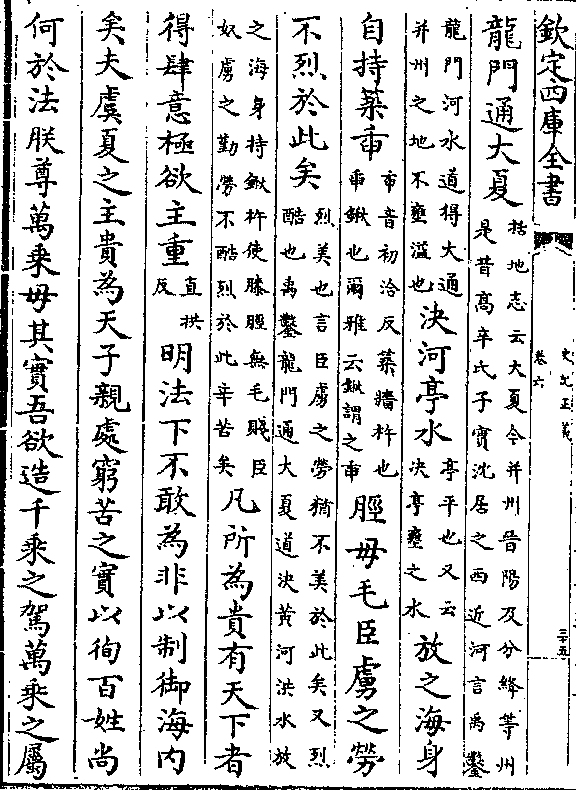 欽定四庫全書
史記正義
卷六
三十五
龍門通大夏括地志云大夏今并州晉陽及汾絳等州
是昔高辛氏子實沈居之西近河言禹鑿
龍門河水道得大通
并州之地不壅溢也決河亭水亭平也又云
決亭壅之水放之海身
自持築臿臿音初洽反築牆杵也
臿鍬也爾雅云鍬謂之臿脛毋毛臣虜之勞
不烈於此矣烈美也言臣虜之勞猶不美於此矣又烈
酷也禹鑿龍門通大夏道決黃河洪水放
之海身持鍬杵使膝脛無毛賤臣
奴虜之勤勞不酷烈於此辛苦矣凡所為貴有天下者
得肆意極欲主重直拱
反明法下不敢為非以制御海內
矣夫虞夏之主貴為天子親處窮苦之實以徇百姓尚
何於法朕尊萬乘毋其實吾欲造千乘之駕萬乘之屬